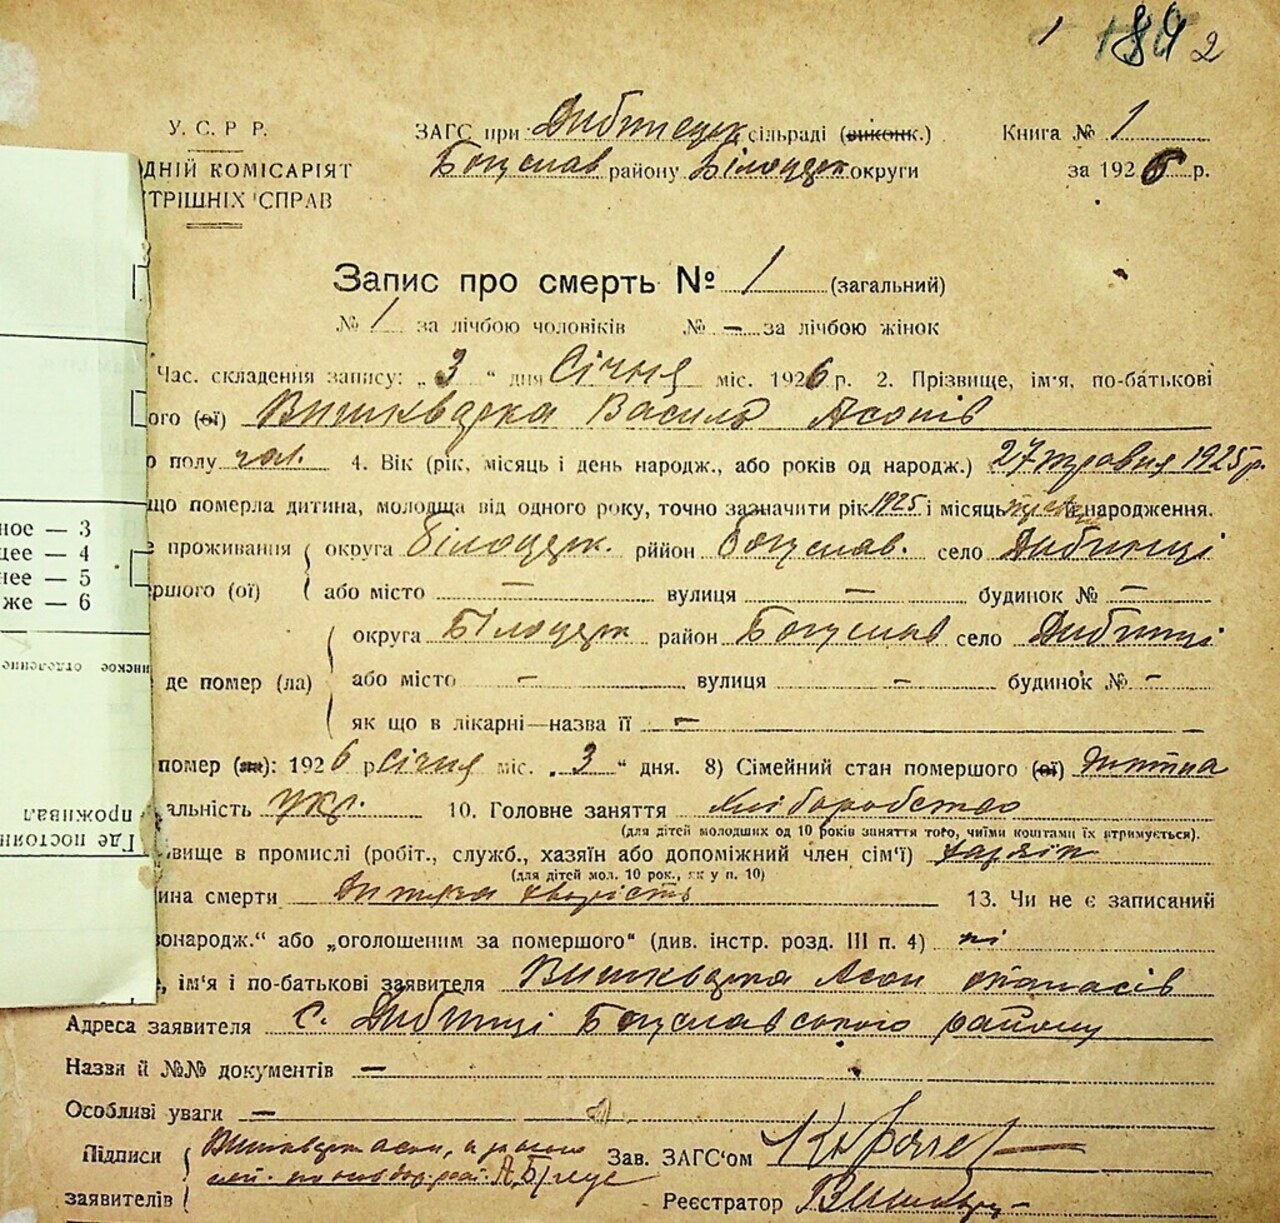 1 189 2
У. С. Р. Р. ЗАГС при Дибинецк сільраді (виконк.) Книга № 1
ДНІЙ КОМІСАРІЯТ Богуслав району Білоцерк округи за 1926 р.
ТРІШНІХ СПРАВ
Запис про смерть № 1 (загальний)
№ 1 за лічбою чоловіків № — за лічбою жінок
Час. складення запису: „ 3 “ дня Січня міс. 1926 р. 2. Прізвище, ім'я, по-батькові
ого (ої) Вишкварка Василь Асонів
полу чол. 4. Вік (рік, місяць і день народж., або років од народж.) 27 травня 1925 р.
що померла дитина, молодща від одного року, точно зазначити рік 1925 і місяць народження.
ное — 3
е проживання округа Білоцерк. рйнйон Богуслав. село Дибинці
щее — 4
нее — 5
ршого (ої) або місто — вулиця — будинок № —
же — 6
округа Білоцерк район Богуслав село Дибинці
инское отделение
де помер (ла) або місто — вулиця — будинок № —
як що в лікарні—назва її —
помер (ла): 1926 р Січня міс. „ 3 “ дня. 8) Сімейний стан помершого (ої) дитина
альність укр. 10. Головне заняття хліборобство
проживал
(для дітей молодших од 10 років заняття того, чиїми коштами їх втримується).
Где постоян
вище в промислі (робіт., служб., хазяїн або допоміжний член сім'ї) хазяїн
(для дітей мол. 10 рок., як у п. 10)
ина смерти Дитяча хворість 13. Чи не є записаний
вонародж.“ або „оголошеним за помершого“ (див. інстр. розд. III п. 4) ні
е, ім'я і по-батькові заявителя Вишкварка Асон Опанасів
Адреса заявителя с. Дибинці Богуславського району
Назви й №№ документів —
Особливі уваги —
Підписи Вишкварка Асон, а за
Зав. ЗАГС'ом
заявителів
Реєстратор